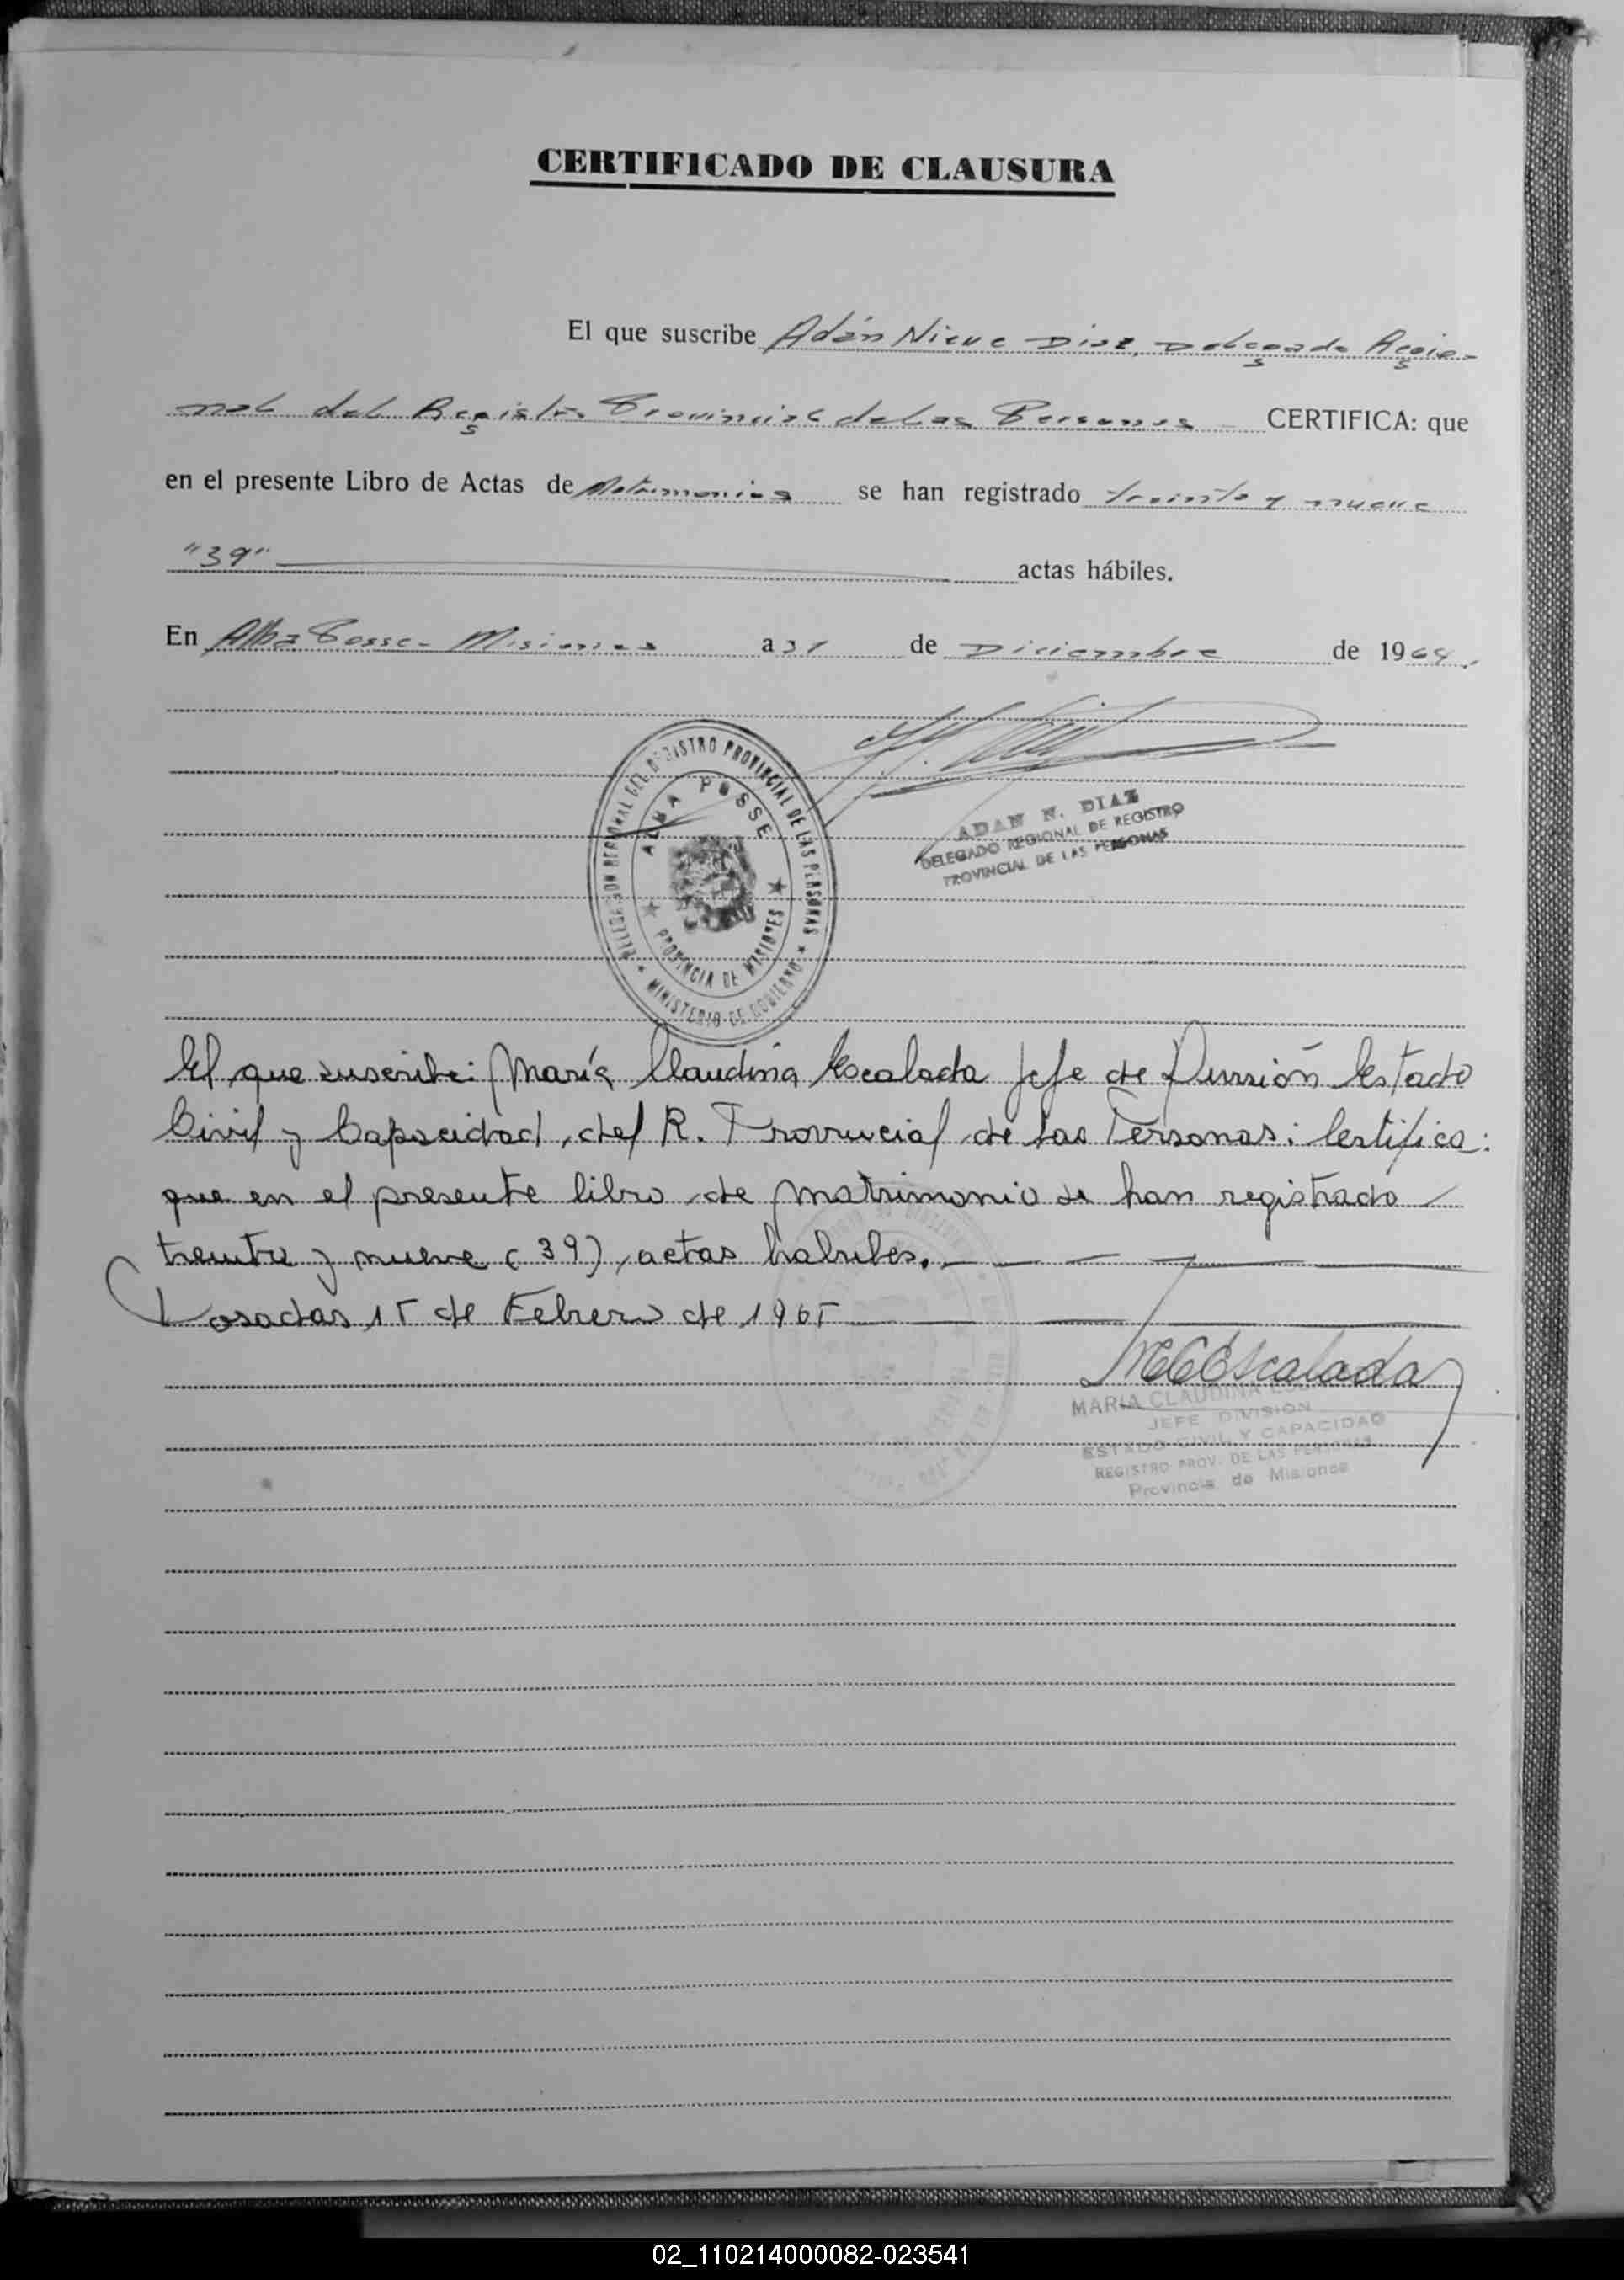 CERTIFICADO DE CLAUSURA
El que suscribe Adán Nieve Diaz, Delegado Regio-
nal del Registro Provincial de Las Personas CERTIFICA: que
en el presente Libro de Actas de Matrimonios se han registrado treinta y nueve
"39" actas hábiles.
En Alba Posse - Misiones a 31 de Diciembre de 1964.
DELEGACION REGIONAL DEL REGISTRO PROVINCIAL DE LAS PERSONAS
ALBA POSSE
PROVINCIA DE MISIONES
MINISTERIO DE GOBIERNO
ADAN N. DIAZ
DELEGADO REGIONAL DE REGISTRO
PROVINCIAL DE LAS PERSONAS
El que suscribe: María Claudina Escalada Jefe de División Estado
Civil y Capacidad, del R. Provincial de las Personas: Certifica:
que en el presente libro de matrimonio se han registrado
treinta y nueve (39), actas habiles.
Posadas 15 de Febrero de 1965
MCEscalada
MARIA CLAUDINA
JEFE DIVISION
ESTADO CIVIL Y CAPACIDAD
REGISTRO PROV. DE LAS PERSONAS
Provincia de Misiones
02_110214000082-023541